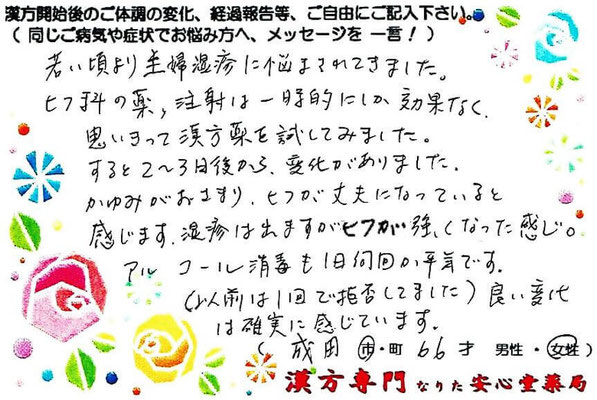 漢方開始後のご体調の変化、経過報告等、ご自由にご記入下さい。
( 同じご病気や症状でお悩み方へ、メッセージを 一言！ )
若い頃より主婦湿疹に悩まされてきました。
ヒフ科の薬，注射は一時的にしか効果なく、
思いきって漢方薬を試してみました。
すると2〜3日後から、変化がありました．
かゆみがおさまり、ヒフが丈夫になっていると
感じます．湿疹は出ますがヒフが強くなった感じ。
アルコール消毒も1日何回か平気です．
(以前は1回で拒否してました) 良い変化
は確実に感じています．
( 成田 市・町 66 才 男性・女性 )
漢方専門 なりた安心堂薬局